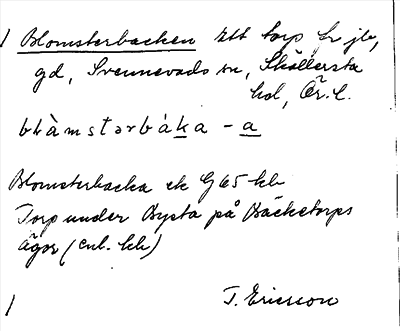 Blomsterbacken ett torp br jb,
gd, Svennevads sn, Sköllersta
hd, Ör. l.
blåmstərbàka - a
Blomsterbacka ek G65 kb
Torp under Bysta på Bäcketorps
ägor (enl. kb)
T. Ericsson